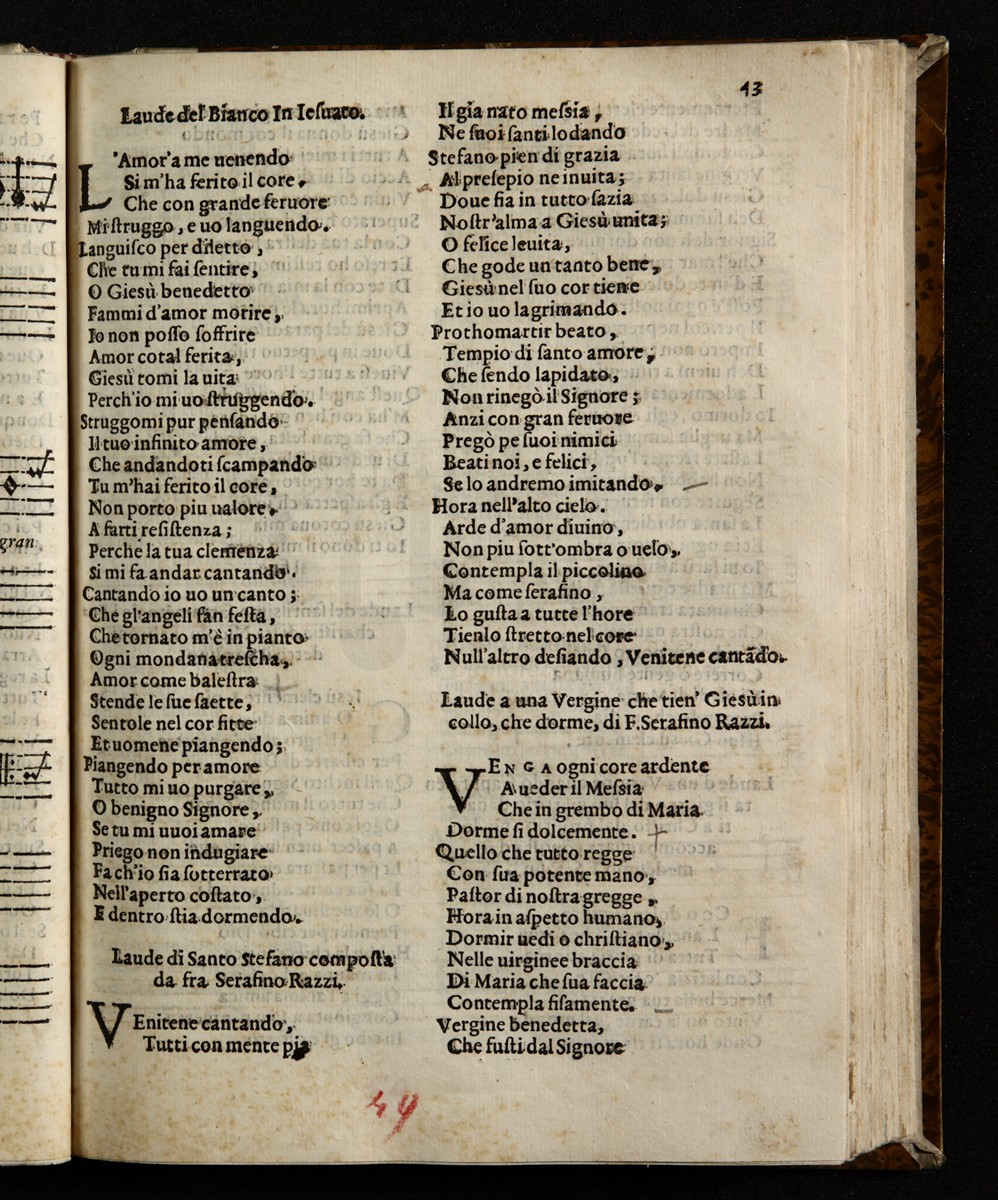 13
Laude del Bianco In Iesuato.
L'Amor'a me uenendo
Si m'ha ferito il core,
Che con grande feruore
Mi struggo, e uo languendo.
Languisco per diletto,
Che tu mi fai sentire,
O Giesù benedetto
Fammi d'amor morire,
Io non posso soffrire
Amor cotal ferita,
Giesù tomi la uita
Perch'io mi uo struggendo.
Struggomi pur pensando
Il tuo infinito amore,
Che andandoti scampando
Tu m'hai ferito il core,
Non porto piu ualore,
A farti resistenza;
Perche la tua clemenza
Si mi fa andar cantando.
Cantando io uo un canto;
Che gl'angeli fan festa,
Che tornato m'è in pianto
Ogni mondana trescha,
Amor come balestra
Stende le sue saette,
Sentole nel cor fitte
Et uomene piangendo;
Piangendo per amore
Tutto mi uo purgare,
O benigno Signore,
Se tu mi uuoi amare
Priego non indugiare
Fa ch'io sia sotterrato
Nell'aperto costato,
E dentro stia dormendo.
Laude di Santo Stefano composta
da fra Serafino Razzi.
VEnitene cantando,
Tutti con mente pia
Il gia nato messia,
Ne suoi santi lodando
Stefano pien di grazia
Al presepio ne inuita;
Doue fia in tutto sazia
Nostr'alma a Giesù unita;
O felice leuita,
Che gode un tanto bene,
Giesù nel suo cor tiene
Et io uo lagrimando.
Prothomartir beato,
Tempio di santo amore,
Che sendo lapidato,
Non rinegò il Signore;
Anzi con gran feruore
Pregò pe suoi nimici
Beati noi, e felici,
Se lo andremo imitando.
Hora nell'alto cielo.
Arde d'amor diuino,
Non piu sott'ombra o uelo,
Contempla il piccolino
Ma come serafino,
Lo gusta a tutte l'hore
Tienlo stretto nel core
Null'altro desiando, Venitene cantãdo.
Laude a una Vergine che tien' Giesù in
collo, che dorme, di F. Serafino Razzi.
VENGA ogni core ardente
A ueder il Messia
Che in grembo di Maria
Dorme si dolcemente.
Quello che tutto regge
Con sua potente mano,
Pastor di nostra gregge,
Hora in aspetto humano,
Dormir uedi o christiano,
Nelle uirginee braccia
Di Maria che sua faccia
Contempla fisamente.
Vergine benedetta,
Che fusti dal Signore
49
gran